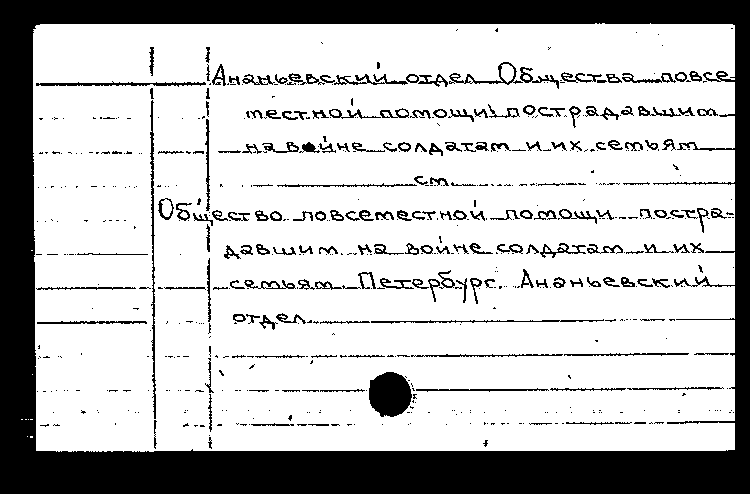 Ананьевский отдел Общества повсе-
местной помощи пострадавшим
на войне солдатам и их семьям
см.
Общество повсеместной помощи постра-
давшим на войне солдатам и их
семьям. Петербург. Ананьевский
отдел